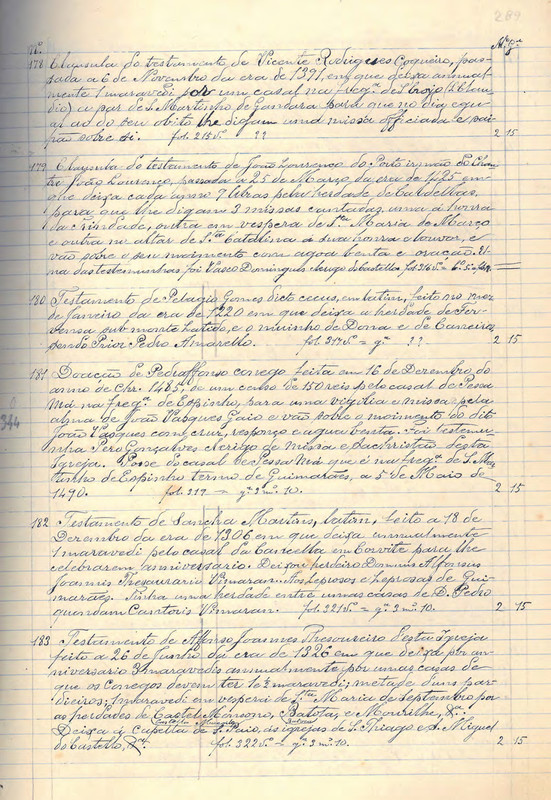 289
Nº
Maço
178 Clausula do testamento de Vicente Rodrigues Coqueiro, pas-
sada a 6 de Novembro da era de 1391, em que deixa annual-
mente 1 maravedi por um casal na fregª de
a par de S. Martinho de Candara para que no dia
do seu obito lhe digam uma missa officiada e
sobre si. fol. 215 vº ?? 2 15
179 Clausula do testamento de João Lourenço do Porto irmão do Chan-
tre João Lourenço, passada a 25 de Março da era de 1425 em
que deixa cada anno 7 libras pela herdade de Caldellas,
para que lhe digam 3 missas cantadas, uma á honra
da Trindade, outra em vespera de Stª Maria de Março
e outra no altar de Stª Catalina á sua honra e louvor, e
vão sobre o seu moimento com agoa benta e oração. U-
ma das testemunhas foi Vasco Domingues clerigo do Castello, fol. 216 vº =
180 Testamento de Pelagio Gomes dicto cecus, em latim, feito no mez
de Janeiro da era de 1220 em que deixa a herdade de Fer-
vensa sub monte, e o muinho de Dona e de Carreiro,
sendo Prior Pedro Amarello. fol. 217 vº = gª ?? 2 15
181 Doação de Pedraffonso conego feita em 16 de Dezembro do
anno de Chr. 1485, de um censo de 150 reis pelo casal de Pessa
Má na fregª. de Espinho, para uma vigilia e missa pela
alma de João Vasques Gaio e vão sobre o moimento do dito
João Vasques com cruz, responço e agua benta. Foi testemu-
nha Pero Gonçalves clerigo de missa e sacristão desta
Igreja. Posse do casal de Pessa Má que é na fregª. de S. Mar-
tinho de Espinho termo de Guimarães, a 5 de Maio de
1490. fol. 217 — gª 3 mº. 10. 2 15
344
182 Testamento de Sancha Martins, latim, feito a 18 de
Dezembro da era de 1306 em que deixa annualmente
1 maravedi pelo casal da Cancella em Corvite para lhe
celebrarem anniversario. Deixou herdeiro Dominus Alfonsus
Joannis Thesourario Vimaran. Aos leprosos e leprosas de Gui-
marães. Tinha uma herdade entre umas casas de D. Pedro
quondam Cantoris Vimaran. fol. 221 vº = gª 3 mº. 10. 2 15
183 Testamento de Affonso Joannes Thesoureiro desta Igreja
feito a 26 de Junho da era de 1326 em que deixa por an-
niversario 3 maravedis annualmente por umas casas de
que os Conegos devem ter 1½ maravedi; metade d'uns par-
dieiros, 1 maravedi em vespera de Stª Maria de Septembro por
as herdades de Castel Menono, Batocas, e Mourilhe, &a.
Deixa á Capella de S. Paio, ás igrejas de S. Thiago e S. Miguel
do Castello, &a. fol. 322 vº — gª. 3 mº. 10. 2 15